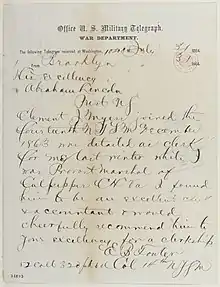 Office U. S. Military Telegraph,
WAR DEPARTMENT.
The following Telegram received at Washington, July 31 186
from Brooklyn 31 186
His Excellency
Abraham Lincoln
Prest US
Clement J Myers joined the
fourteenth N.Y.S.M December
1863 was detailed as clerk
for me last winter while I
was Provost Marshal of
Culpepper C.H. Va I found
him to be an excellent clerk
& accountant & would
cheerfully recommend him to
your excellency for a clerkship
E B Fowler
Col 14th N.Y.S.M